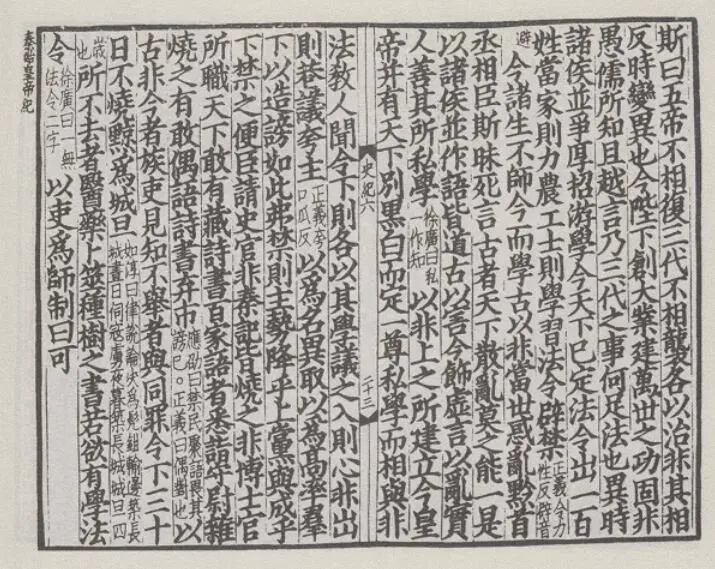 斯曰五帝不相復三代不相襲各以治非其相
反時變異也今陛下創大業建萬世之功固非
愚儒所知且越言乃三代之事何足法也異時
諸侯並爭厚招游學今天下已定法令出一百
姓當家則力農工士則學習法令辟禁正義令力性反辟音
避今諸生不師今而學古以非當世惑亂黔首
丞相臣斯昧死言古者天下散亂莫之能一是
以諸侯並作語皆道古以害今飾虛言以亂實
人善其所私學徐廣曰私一作知以非上之所建立今皇
帝并有天下別黑白而定一尊私學而相與非
史紀六 二十三
法教人聞令下則各以其學議之入則心非出
則巷議夸主正義夸口瓜反以爲名異取以爲高率羣
下以造謗如此弗禁則主勢降乎上黨與成乎
下禁之便臣請史官非秦記皆燒之非博士官
所職天下敢有藏詩書百家語者悉詣守尉雜
燒之有敢偶語詩書弃市應劭曰禁民聚語畏其謗己。正義曰偶對也以
古非今者族吏見知不舉者與同罪令下三十
日不燒黥爲城旦如淳曰律說論決爲髡鉗輸邊築長城晝日伺寇虜夜暮築長城城旦四
歲也所不去者醫藥卜筮種樹之書若欲有學法
令徐廣曰一無法令二字以吏爲師制曰可
秦始皇帝紀